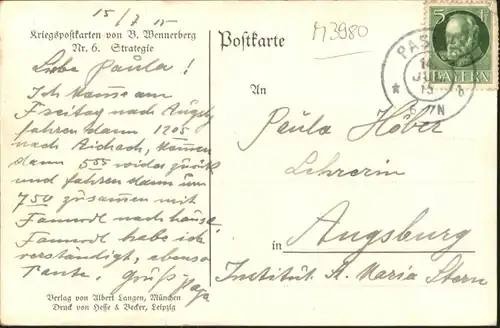 15/7 15
Kriegspostkarten von B. Wennerberg
Nr. 6. Strategie
Liebe Paula!
Ich komme am
Freitag nach Augsbg
fahren dann 12 05
nach Aichach, kommen
dann 5 55 wieder zurück
und fahren dann um
7 50 zusammen mit
nach hause.
habe ich
verständigt, ebenso
Tante. Gruß
Verlag von Albert Langen, München
Druck von Hesse & Becker, Leipzig
M3980
Postkarte
An
Paula Höber
Lehrerin
in Augsburg
Institut St. Maria Stern
5
BAYERN
PAS
JUL
15
N